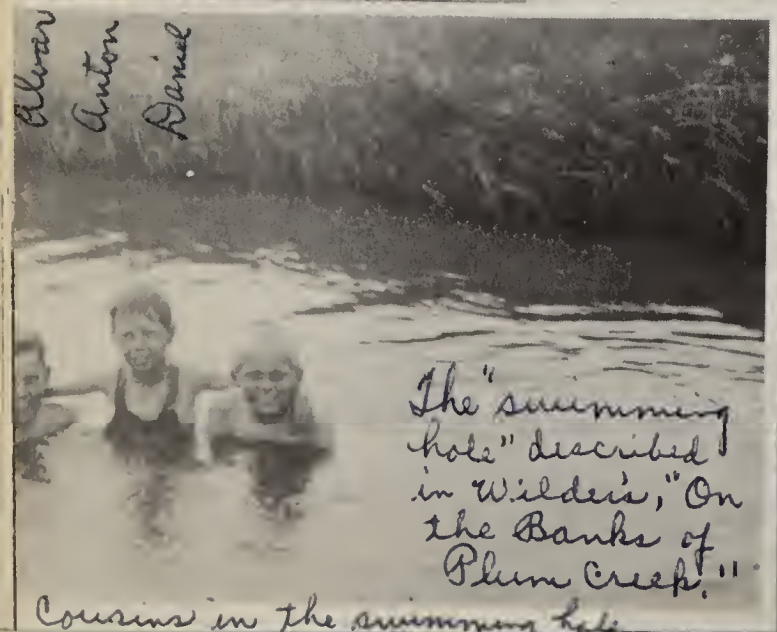 Alvar
Anton
Daniel
The "swimming
hole" described
in Wilder's, "On
the Banks of
Plum Creek."
Cousins in the swimming hole